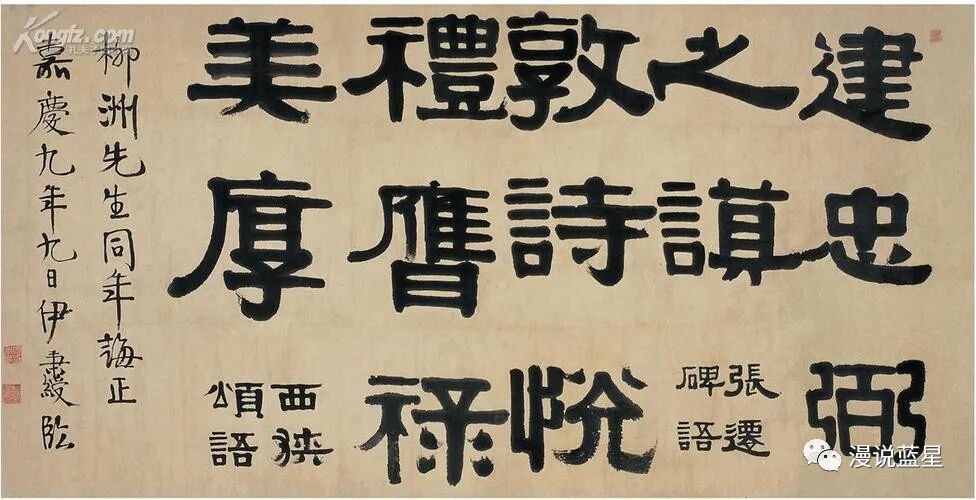 建忠弼
之謨
張遷
碑語
敦詩悅
禮膺祿
美厚
西狹
頌語
柳洲先生同年誨正
嘉慶九年九日伊秉綬臨
Kongfz.com
漫说蓝星